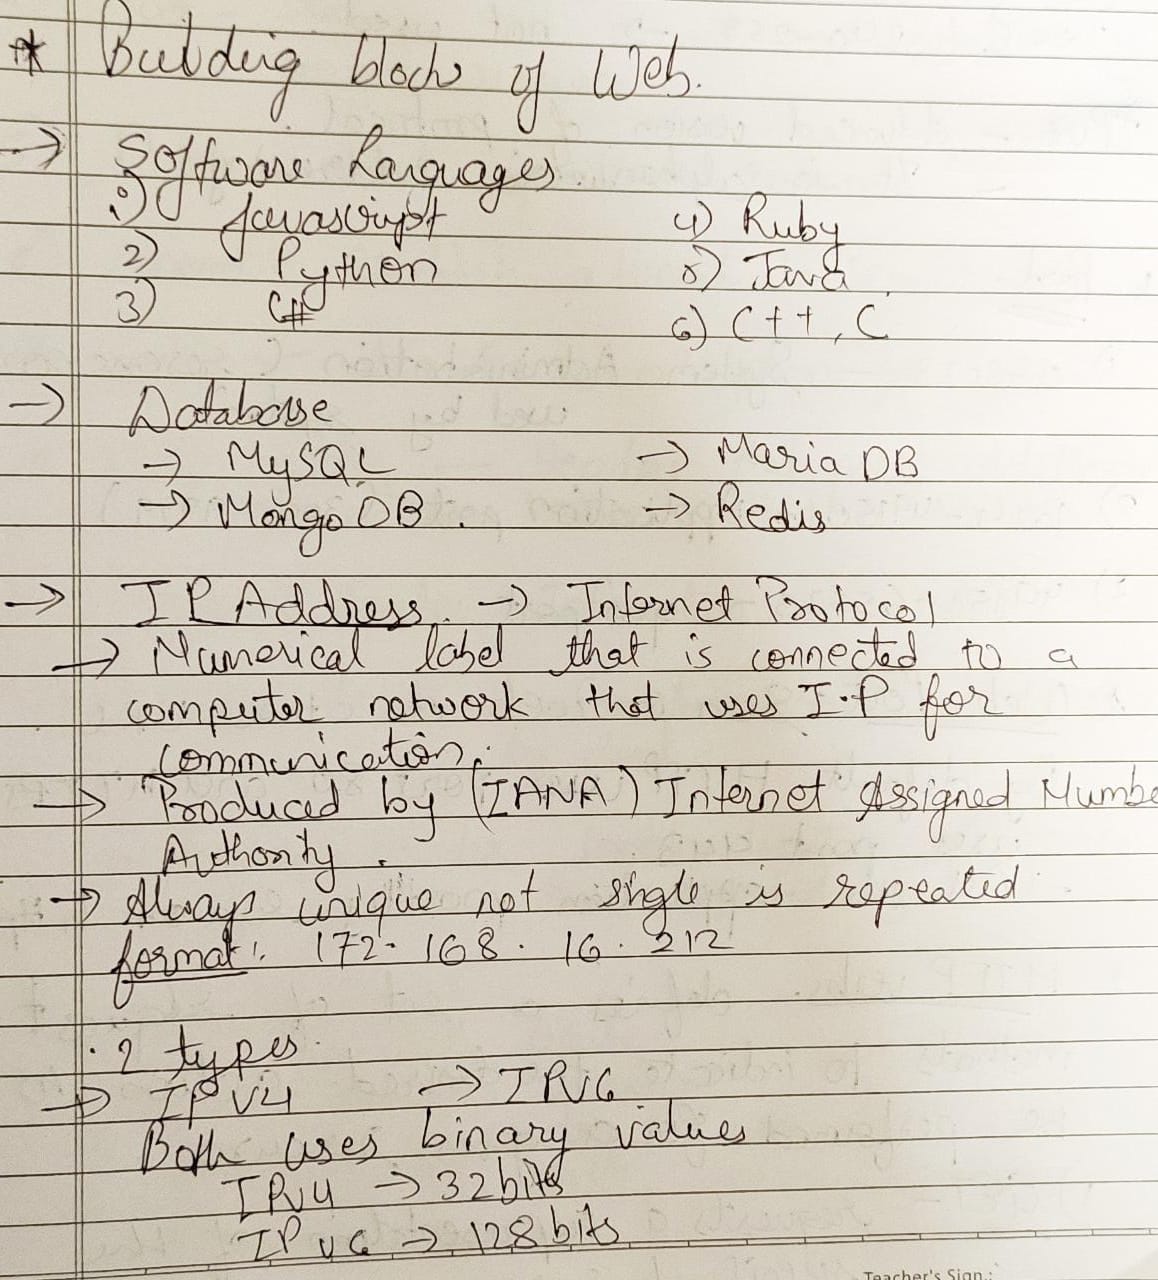 * Building blocks of Web.
→ Software Languages.
1) Javascript 4) Ruby
2) Python 5) Java
3) C# 6) C++, C
→ Database
→ MySQL → Maria DB
→ MongoDB. → Redis
→ IP Address. → Internet Protocol
→ Numerical label that is connected to a
computer network that uses I.P for
communication.
→ Produced by (IANA) Internet Assigned Numbe
Authority.
→ Always unique not single is repeated
format: 172. 168. 16. 212
. 2 types.
→ IPV4 → IPV6
Both uses binary values
IPV4 → 32 bits
IPV6 → 128 bits
Teacher's Sign.: